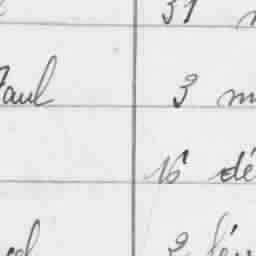 31
Paul 3 m
16 dé
2 fév